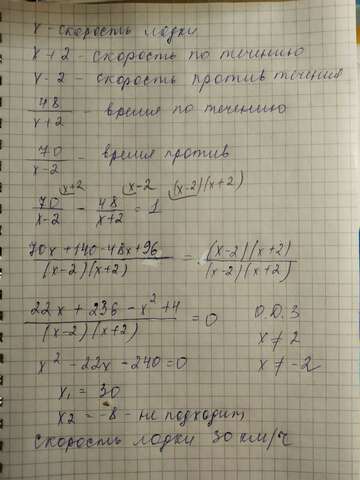 x - скорость лодки
x+2 - скорость по течению
x-2 - скорость против течения
48/(x+2) - время по течению
70/(x-2) - время против
x+2 x-2 (x-2)(x+2)
70/(x-2) - 48/(x+2) = 1
(70x+140-48x+96)/((x-2)(x+2)) = ((x-2)(x+2))/((x-2)(x+2))
(22x+236-x²+4)/((x-2)(x+2)) = 0 О.Д.З
x≠2
x²-22x-240=0 x≠-2
x₁ = 30
x2 = -8 - не подходит
скорость лодки 30 км/ч